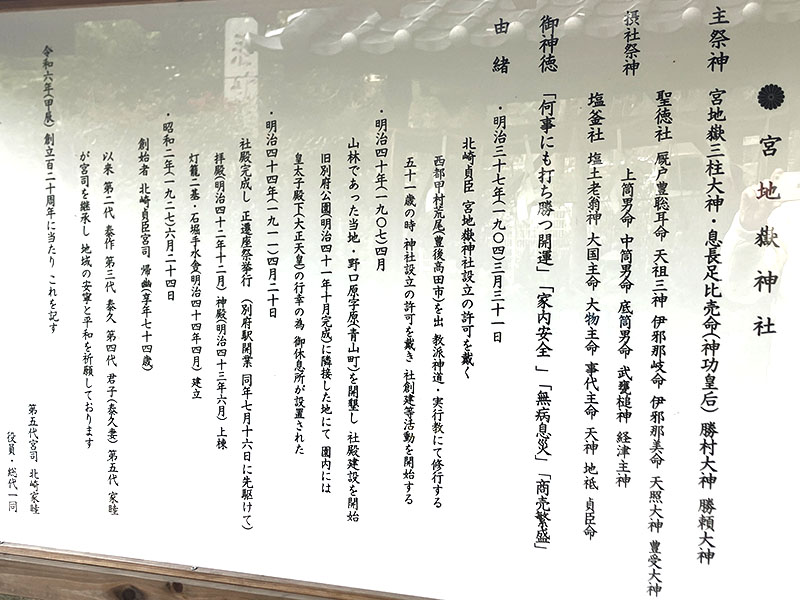 宮地嶽神社
主祭神 宮地嶽三柱大神・息長足比売命(神功皇后) 勝村大神 勝頼大神
聖徳社 厩戸豊聡耳命 天祖三神 伊邪那岐命 伊邪那美命 天照大神 豊受大神
摂社祭神 上筒男命 中筒男命 底筒男命 武甕槌神 経津主神
塩釜社 塩土老翁神 大国主命 大物主命 事代主命 天神 地祇 貞臣命
御神徳 「何事にも打ち勝つ開運」「家内安全」「無病息災」「商売繁盛」
由緒
・明治三十七年(一九〇四)三月三十一日
北崎貞臣 宮地嶽神社設立の許可を戴く
西都甲村荒尾(豊後高田市)を出 教派神道・実行教にて修行する
五十一歳の時 神社設立の許可を戴き 社創建等活動を開始する
・明治四十年(一九〇七)四月
山林であった当地・野口原字原(青山町)を開墾し 社殿建設を開始
旧別府公園(明治四十一年十月完成)に隣接した地にて 園内には
皇太子殿下(大正天皇)の行幸の為 御休息所が設置された
・明治四十四年(一九一一)四月二十日
社殿完成し 正遷座祭挙行 (別府駅開業 同年七月十六日に先駆けて)
拝殿(明治四十二年十二月) 神殿(明治四十三年六月)上棟
灯籠二基・石堀手水舎(明治四十四年四月) 建立
・昭和二年(一九二七)六月二十四日
創始者 北崎貞臣宮司 帰幽(享年七十四歳)
以来 第二代 泰作 第三代 泰久 第四代 君子(泰久妻) 第五代 家睦
が宮司を継承し 地域の安寧と平和を祈願しております
令和六年(甲辰) 創立百二十周年に当たり これを記す
第五代宮司 北崎家睦
役員・総代一同